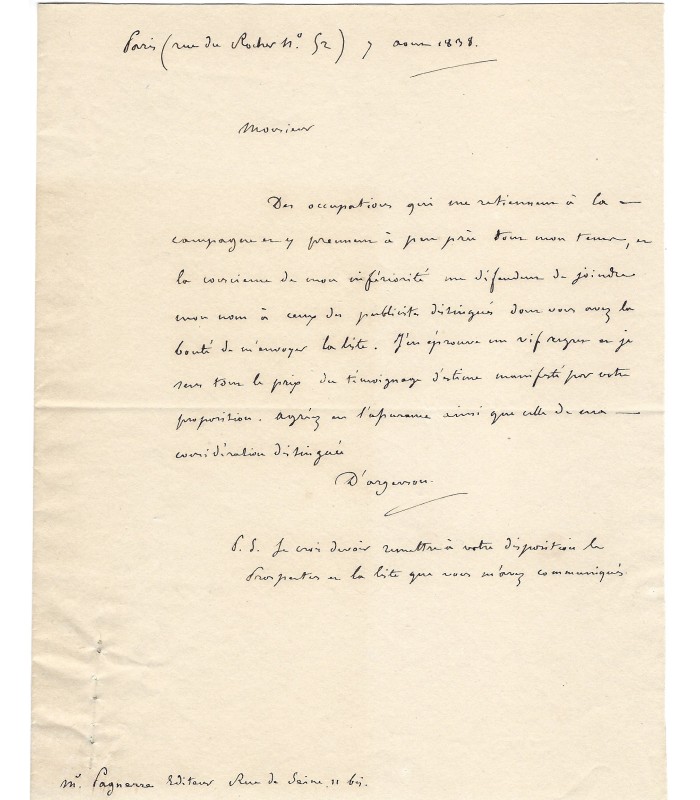 Paris (rue du Rocher N.º 52) 7 aout 1838.
Monsieur
Des occupations qui me retiennent à la
campagne et y prennent à peu près tout mon tems, et
la conscience de mon infériorité me défendent de joindre
mon nom à ceux des publicistes distingués dont vous avez la
bonté de m'envoyer la liste. J'en éprouve un vif regret et je
sens tout le prix du témoignage d'estime manifesté par votre
proposition. Agréez en l'assurance ainsi que celle de ma
considération distinguée
D'argenson.
P. S. Je crois devoir remettre à votre disposition le
Prospectus et la liste que vous m'avez communiqués.
Mr. Pagnerre Editeur Rue de Seine, 11 bis.